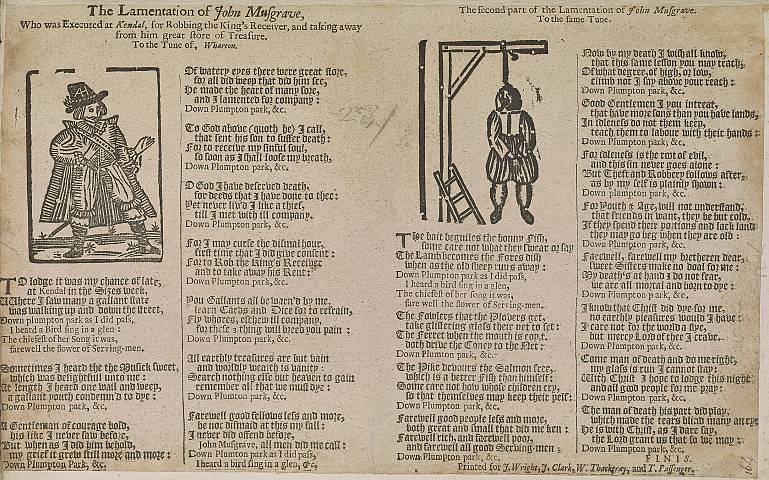 The Lamentation of John Musgrave,
Who was Executed at Kendal, for Robbing the King's Receiver, and taking away
from him great store of Treasure.
To the Tune of, Wharton.
TO lodge it was my chance of late,
at Kendal in the Sizes week,
Where I saw many a gallant state
was walking up and down the street,
Down plumpton park as I did pass,
I heard a Bird sing in a glen:
The chiefest of her Song it was,
farewell the flower of Serving-men.
Sometimes I heard the the Musick sweet,
which was delightful unto me:
At length I heard one wail and weep,
a gallant youth condemn'd to dye:
Down Plumpton park, &c.
A Gentleman of courage bold,
his like I never saw before,
But when as I did him behold,
my grief it grew still more and more:
Down Plumpton Park, &c.
Of watery eyes there were great store,
for all did weep that did him see,
He made the heart of many sore,
and I lamented for company:
Down Plumpton park, &c.
To God above (quoth he) I call,
that sent his son to suffer death:
For to receive my sinful soul,
so soon as I shall loose my breath,
Down Plumpton park, &c.
O God I have deserved death,
for deeds that I have done to thee:
Yet never liv'd I like a thief,
till I met with ill company.
Down Plumpton park, &c.
For I may curse the dismal hour,
first time that I did give consent:
For to Rob the King's Receiver
and to take away his Rent:
Down Plumpton park, &c.
You Gallants all be warn'd by me,
learn Cards and Dice for to refrain,
Fly whores, eschew ill company,
for these 3 thing will breed you pain:
Down Plumpton park, &c.
All earthly treasures are but vain
and worldly wealth is vanity:
Search nothing else but heaven to gain
remember all that we must dye:
Down Plumpton park, &c.
Farewell good fellows less and more,
be not dismaid at this my fall:
I never did offend before,
John Musgrave, all men did me call:
Down Plumpton park as I did pass,
I heard a bird sing in a glen, &c.
The second part of the Lamentation of John Musgrave.
To the same Tune.
THe bait beguiles the bonny Fish,
some care not what they swear or say
The Lamb becomes the Foxes dish
when as the old sheep runs away:
Down Plumpton park as I did pass,
I heard a bird sing in a glen,
The chiefest of her song it was,
fare well the flower of Serving-men.
The Fowlers that the Plovers get,
take glistering glass their net to set:
The Ferret when the mouth is copt,
doth drive the Coney to the Net:
Down Plumton park, &c.
The Pike devours the Salmon free,
which is a better Fish than himself:
Some care not how whose children cry,
so that themselves may keep their pelf:
Down Plumpton park, &c.
Farewell good people less and more,
both great and small that did me ken:
Farewell rich, and farewell poor,
and farewell all good Serving-men:
Down Plumpton park, &c.
Now by my death I wish all know,
that this same lesson you may teach,
Of what degree, of high, or low,
climb not I say above your reach:
Down Plumpton park, &c.
Good Gentlemen I you intreat,
that have more sons than you have lands,
In idleness do not them keep,
teach them to labour with their hands:
Down Plumpton park, &c.
For idleness is the root of evil,
and this sin never goes alone:
But Theft and Robbery follows after,
as by my self is plainly shown:
Down plumpton park, &c.
For Youth & Age, will not understand,
that friends in want, they be but cold,
If they spend their portions and lack land
they may go beg when they are old:
Down Plumpton park, &c.
Farewell, farewell my bretheren dear,
sweet Sisters make no doal for me:
My death's at hand I do not fear,
we are all mortal and born to dye:
Down Plumpton park, &c.
I know that Christ did dye for me,
no earthly pleasures would I have:
I care not for the world a flye,
but mercy Lord of thee I crave.
Down Plumpton park, &c.
Come man of death and do me right,
my glass is run I cannot stay:
With Christ I hope to lodge this night
and all good people for me pray:
Down Plumpton park, &c.
The man of death his part did play,
which made the tears blind many an eye
He is with Christ, as I dare say,
the Lord grant us that so we may:
Down Plumpton park, &c.
FINIS.
Printed for J. Wright, J. Clark, W. Thackeray, and T. Passenger.